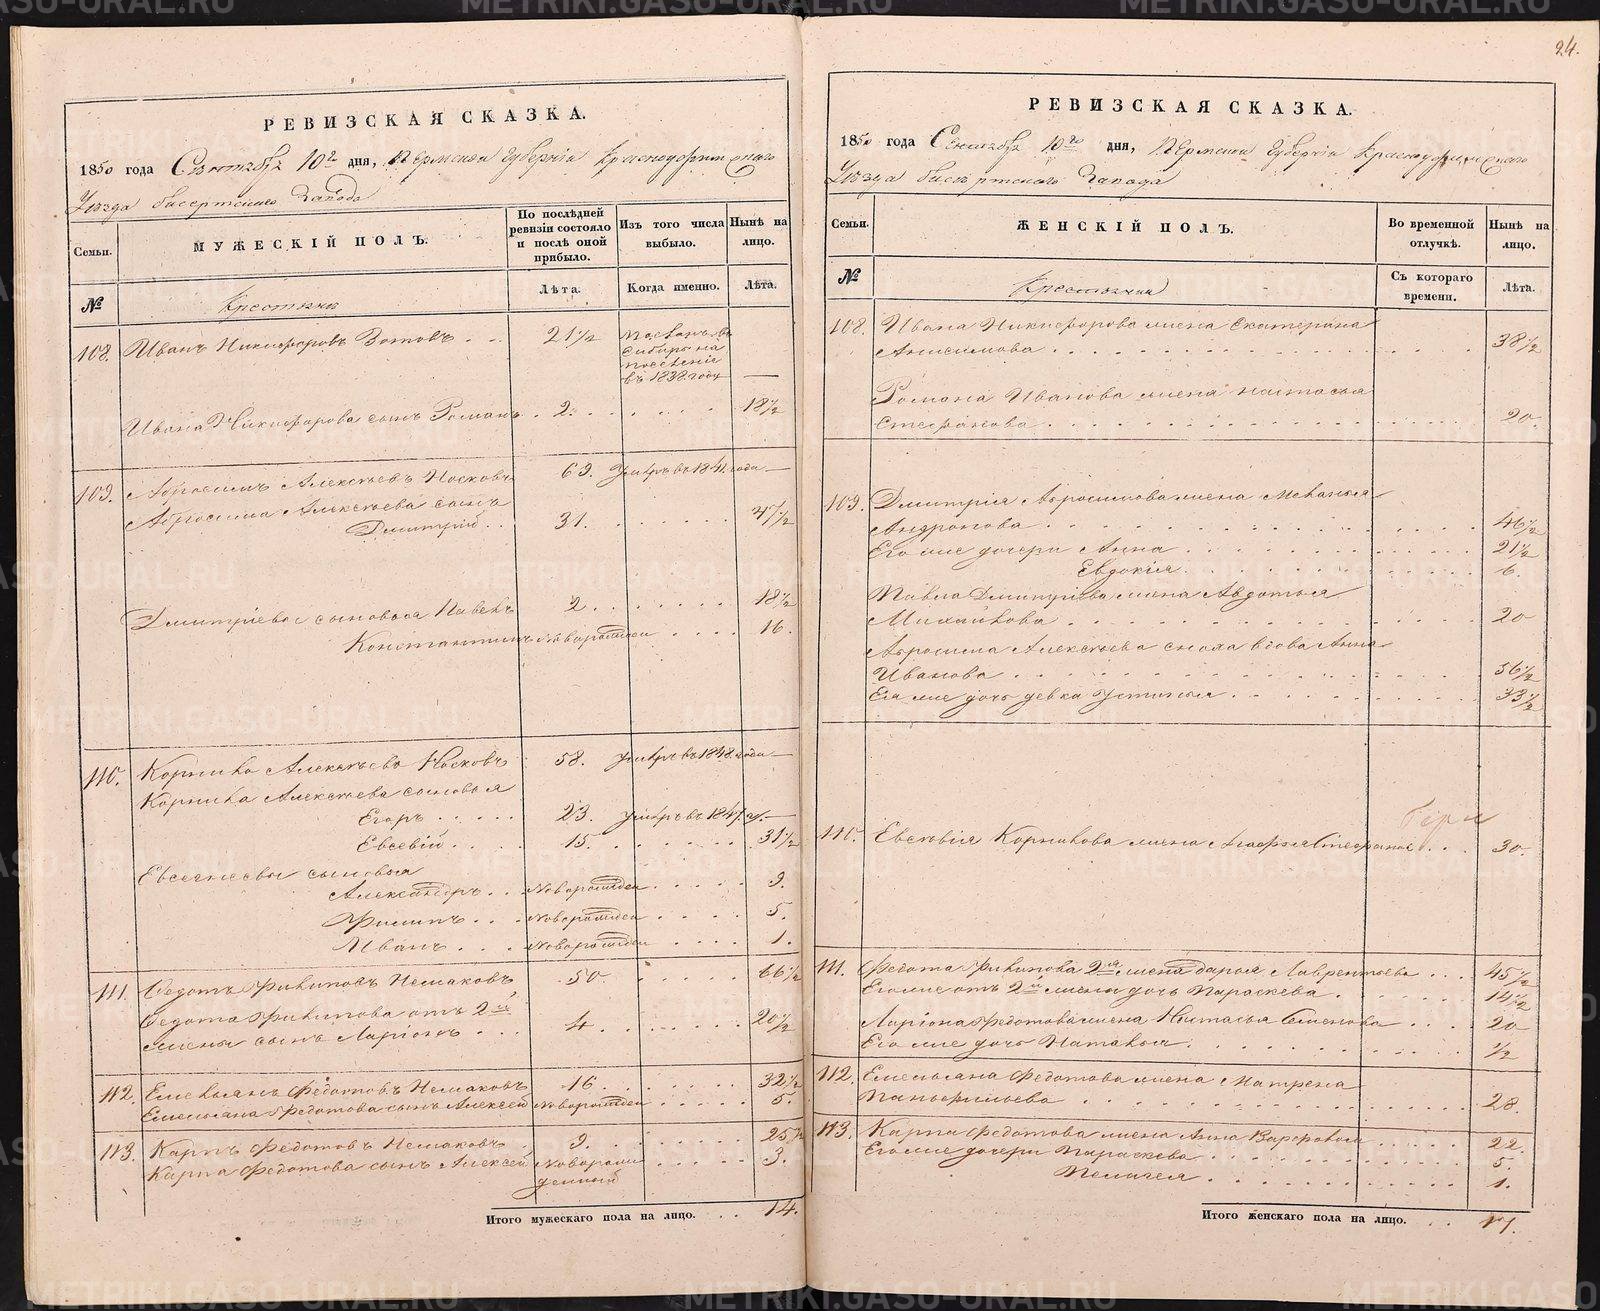 24.
РЕВИЗСКАЯ СКАЗКА.
1850 года Сентября 10го дня, Пермской Губернии Красноуфимскаго
Уезда Бисертскаго Завода
Семьи.
МУЖЕСКІЙ ПОЛЪ.
По послѣдней ревизіи состояло и послѣ оной прибыло.
Изъ того числа выбыло.
Нынѣ на лицо.
№
Крестьяне
Лѣта.
Когда именно.
Лѣта.
108. Иванъ Никифоровъ Зотовъ . . 21 1/2 Посланъ въ
Сибирь на
поселеніе
въ 1838 году —
Ивана Никифорова сынъ Романъ . 2. 18 1/2
109. Абросимъ Алексѣевъ Носковъ 69. Умеръ въ 1841 года —
Абросима Алексѣева сынъ
Дмитрій . . 31. 47 1/2
Дмитріевы сыновья Павелъ 2. 18 1/2
Константинъ Новорожден 16.
110. Корнила Алексѣевъ Носковъ 58. умеръ въ 1848 года —
Корнила Алексѣева сыновья
Егоръ . . . . . 23. умеръ въ 1847 г. —
Евсевій . . . . 15. 31 1/2
Евсевіевы сыновья
Александръ . . Новорожден 9.
Филипъ . . . Новорожден 5.
Иванъ . . . Новорожден 1.
111. Федотъ Филиповъ Немаковъ 50 66 1/2
Федота Филипова отъ 2й
жены сынъ Ларіонъ . . 4. 20 1/2
112. Емельянъ Федотовъ Немаковъ 16. 32 1/2
Емельяна Федотова сынъ Алексей Новорожден 5.
113. Карпъ Федотовъ Немаковъ 9. 25 1/2
Карпа Федотова сынъ Алексей Новорож
денный 3.
Итого мужескаго пола на лицо. . . . 14.
РЕВИЗСКАЯ СКАЗКА.
1850 года Сентября 10го дня, Пермской Губернии Красноуфимскаго
Уезда Бисертскаго Завода
Семьи.
ЖЕНСКІЙ ПОЛЪ.
Во временной отлучкѣ.
Нынѣ на лицо.
№
Крестьянки
Съ котораго времени.
Лѣта.
108. Ивана Никифорова жена Екатерина
Анисимова 38 1/2
Романа Иванова жена Настасья
Стефанова 20.
109. Дмитрія Абросимова жена Меланья
Андронова 46 1/2
Его же дочери Анна 21 1/2
Евдокія 6.
Павла Дмитріева жена Авдотья
Михайлова 20
Абросима Алексѣева сноха вдова Анна
Иванова 56 1/2
Ея же дочь девка Устинья 33 1/2
110. Евсевія Корнилова жена Агафья Стефанова . . . 30.
111. Федота Филипова 2я жена Дарья Лаврентьева . . . 45 1/2
Его же отъ 2й жены дочь Параскева 14 1/2
Ларіона Федотова жена Настасья Семенова . . . 20
Его же дочь Наталья 1/2
112. Емельяна Федотова жена Матрена
Панфильева 28.
113. Карпа Федотова жена Анна 22.
Его же дочери Параскева 5.
Пелагея 1.
Итого женскаго пола на лицо. . . . 17.
METRIKI.GASO-URAL.RU